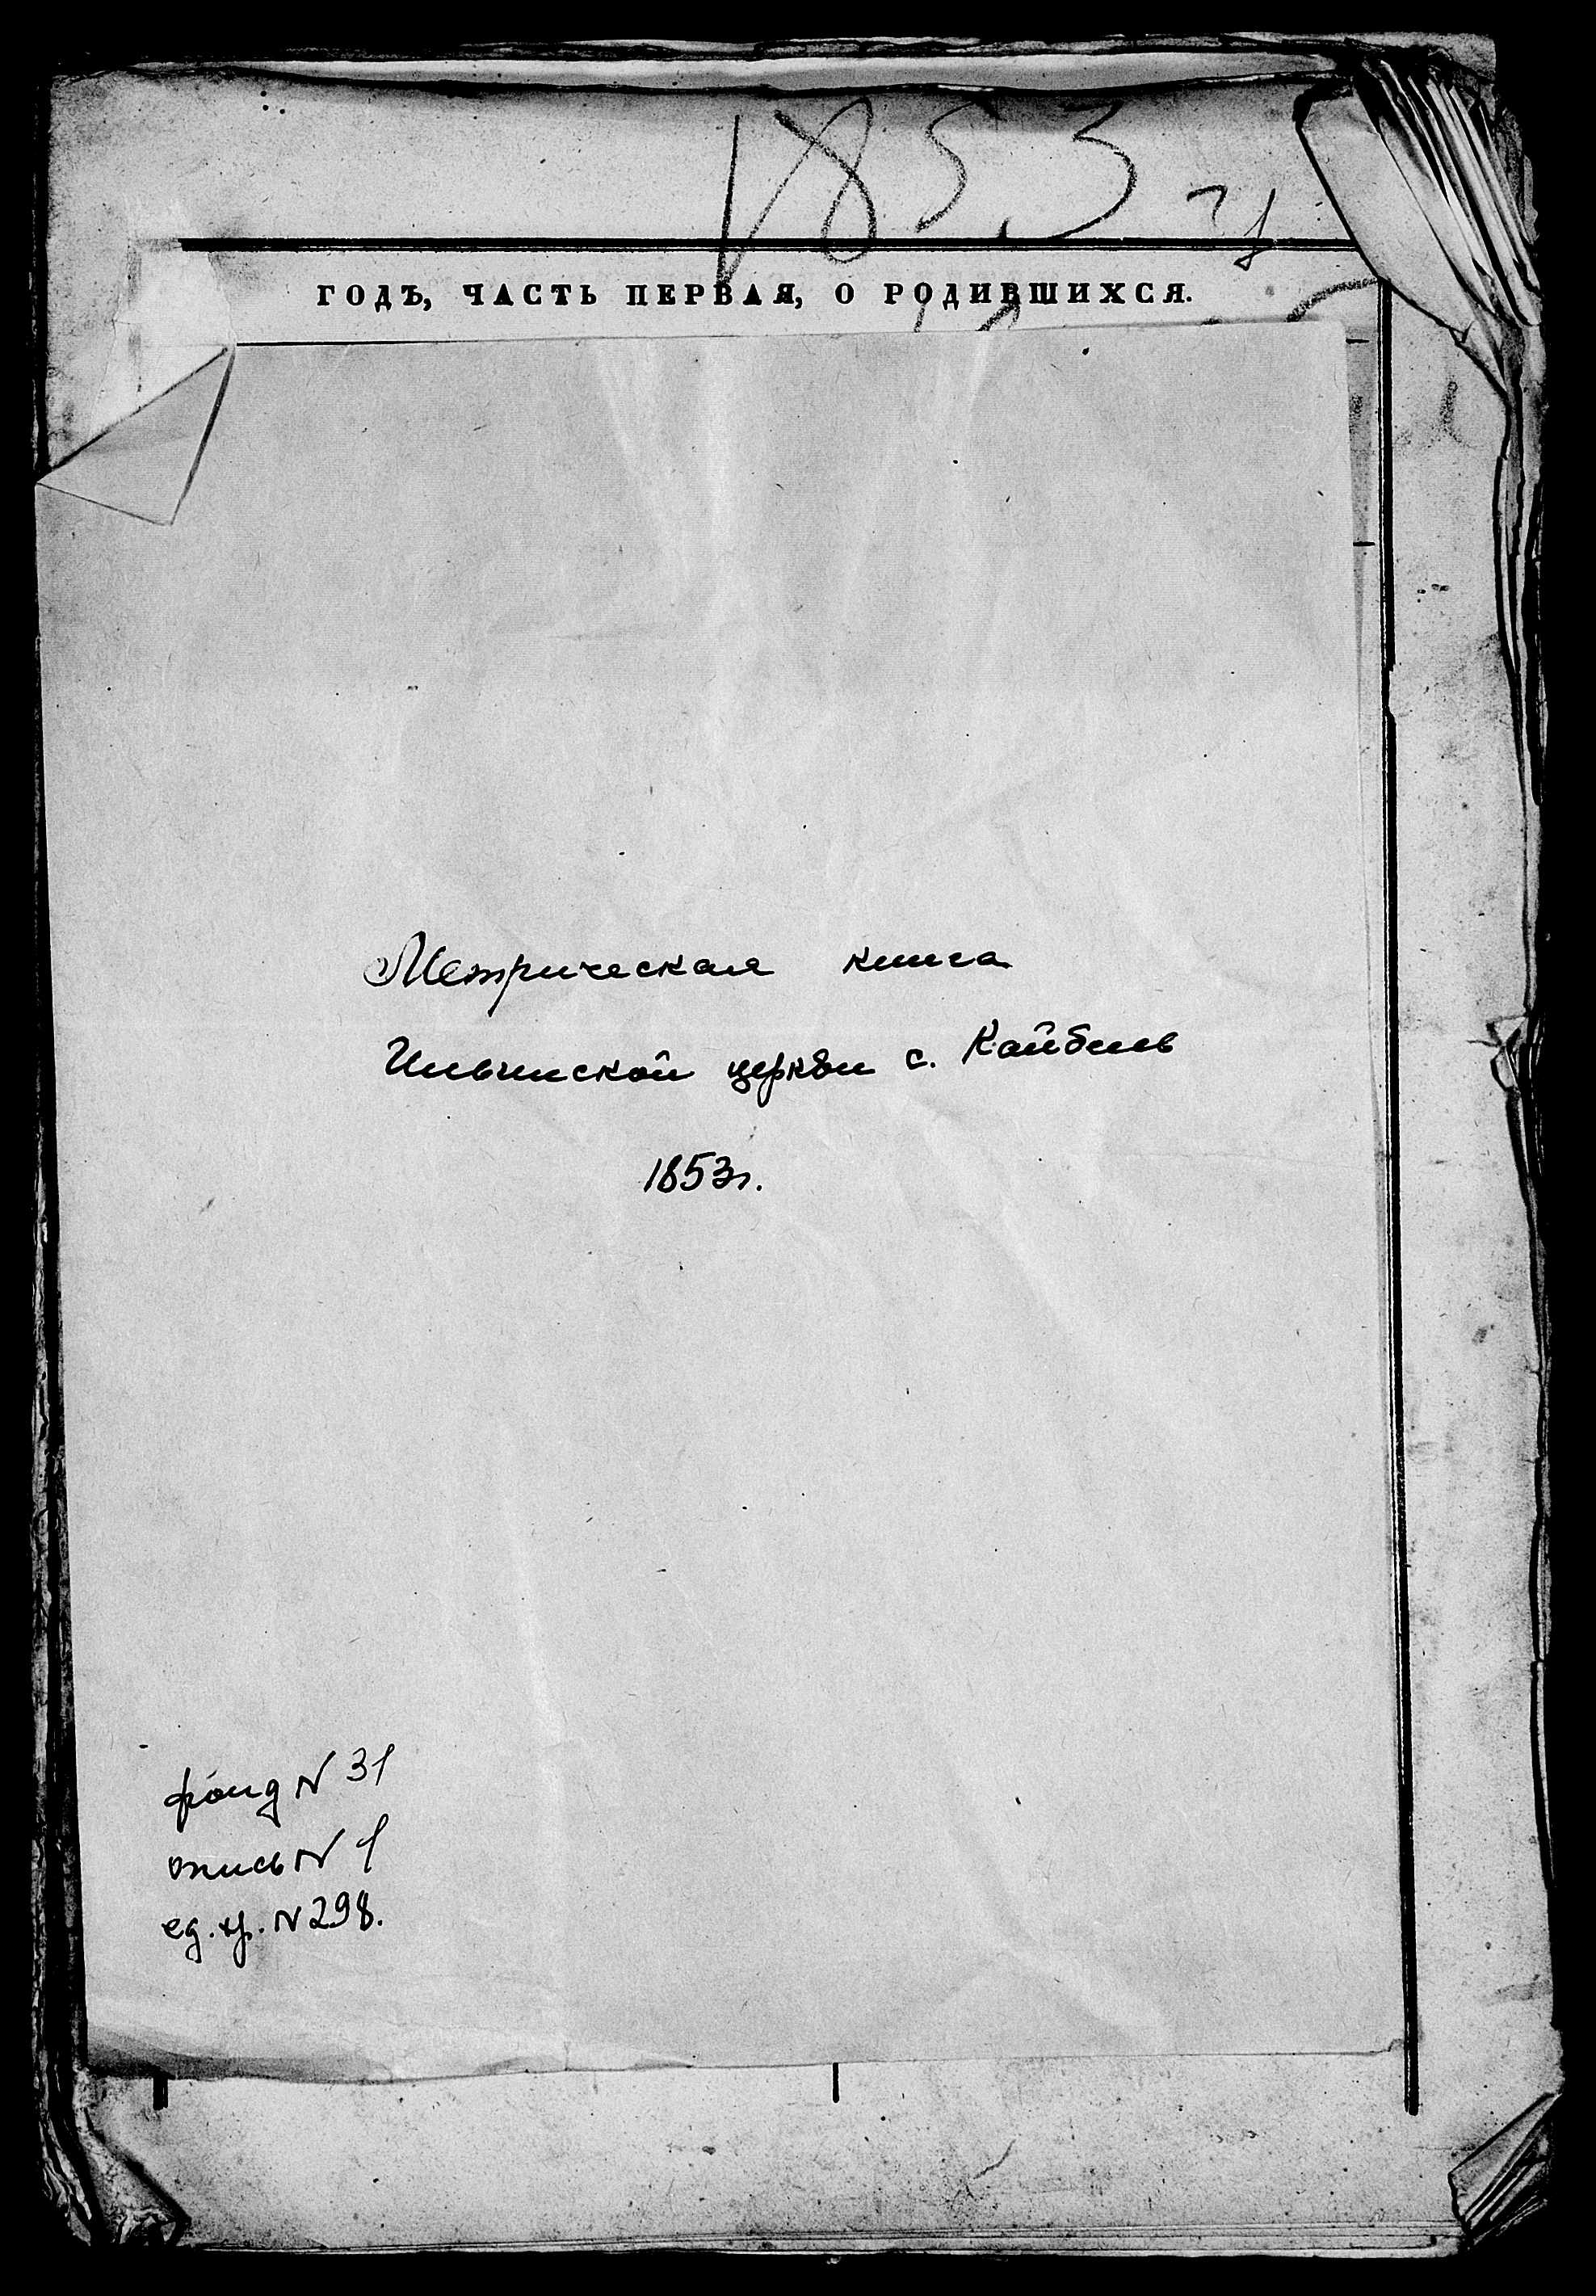 1853 г
ГОДЪ, ЧАСТЬ ПЕРВАЯ, О РОДИВШИХСЯ.
Метрическая книга
Ильинской церкви с. Кайбелы
1853г.
фонд N 31
опись N 1
ед. хр. N 298.